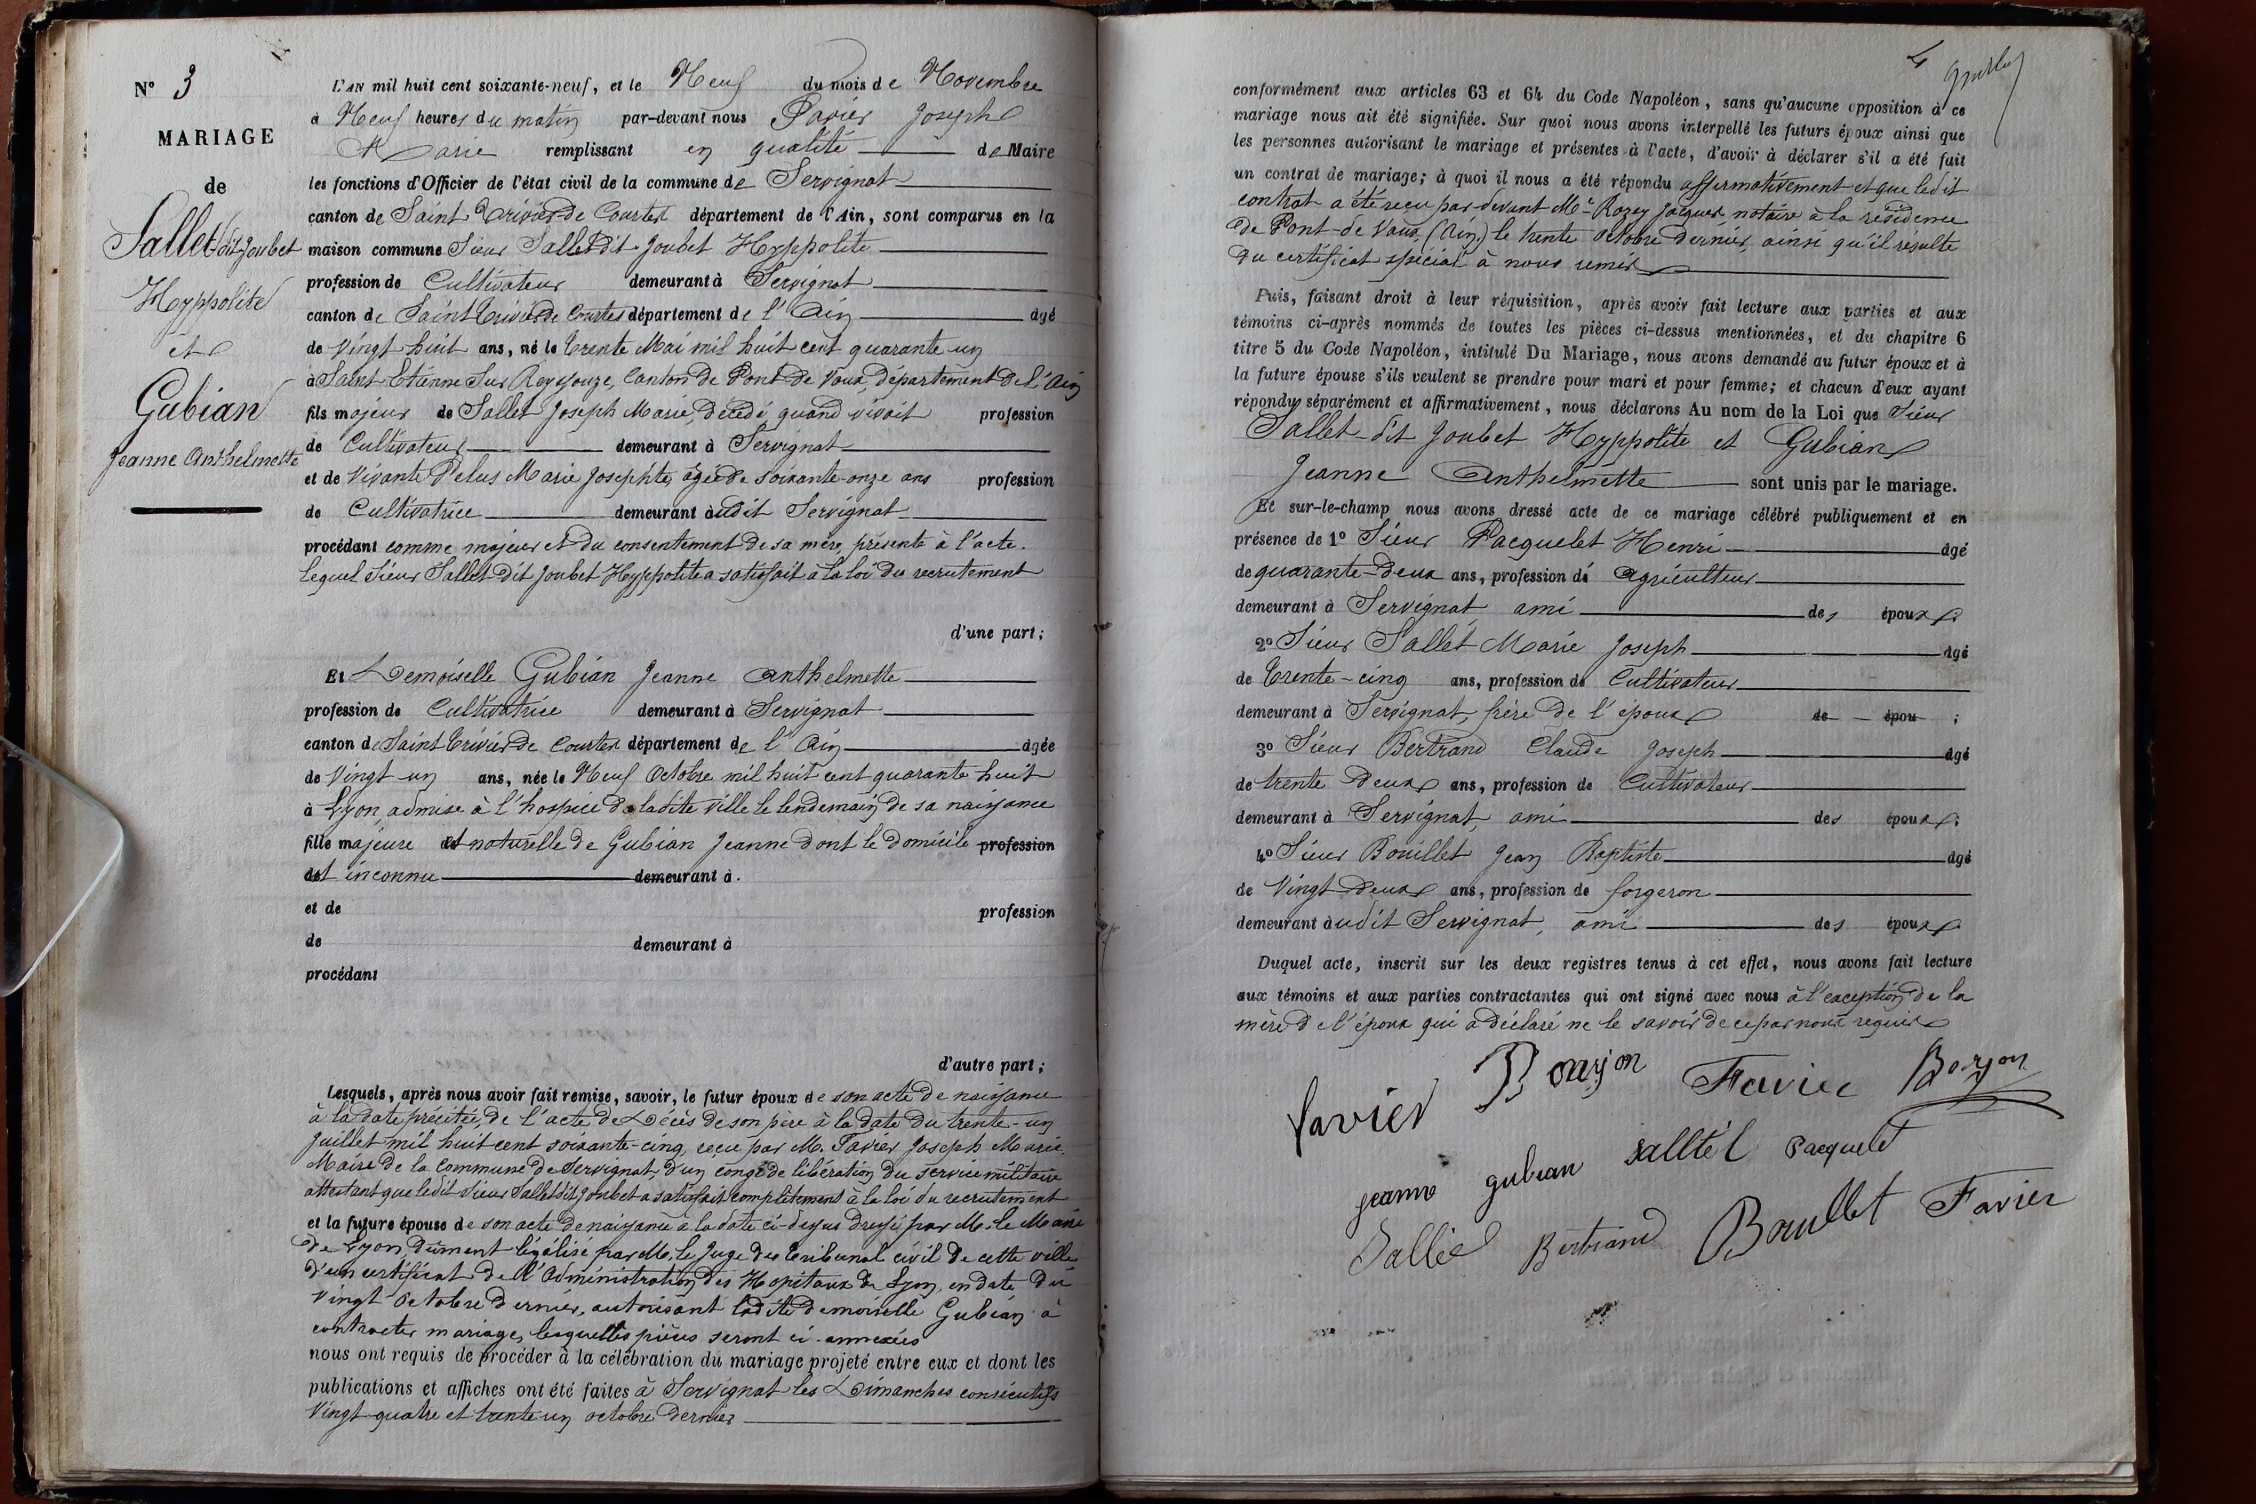 N° 3
MARIAGE
de
Sallet dit Joubet
Hyppolite
et
Gubian
Jeanne Anthelmette
L'AN mil huit cent soixante-neuf, et le Neuf du mois de Novembre
à Neuf heures du matin par-devant nous Favier Joseph
Marie remplissant en qualité de Maire
les fonctions d'Officier de l'état civil de la commune de Servignat
canton de Saint Trivier de Courtes département de l'Ain, sont comparus en la
maison commune Sieur Sallet dit Joubet Hyppolite
profession de Cultivateur demeurant à Servignat
canton de Saint Trivier de Courtes département de l'Ain âgé
de Vingt huit ans, né le trente Mai mil huit cent quarante un
à Saint Etienne Sur Reyssouze, Canton de Pont de Vaux, département de l'Ain
fils majeur de Sallet Joseph Marie, décédé, quand vivait profession
de Cultivateur demeurant à Servignat
et de Vivante Pelus Marie Josephte, âgée de soixante-onze ans profession
de Cultivatrice demeurant audit Servignat
procédant comme majeur et du consentement de sa mère, présente à l'acte.
lequel Sieur Sallet dit Joubet Hyppolite a satisfait à la loi du recrutement
d'une part;
Et Demoiselle Gubian Jeanne Anthelmette
profession de Cultivatrice demeurant à Servignat
canton de Saint Trivier de Courtes département de l'Ain âgée
de Vingt-un ans, née le Neuf Octobre mil huit cent quarante huit
à Lyon, admise à l'hospice de ladite ville le lendemain de sa naissance
fille majeure et naturelle de Gubian Jeanne dont le domicile profession
est inconnu demeurant à
et de profession
de demeurant à
procédant
d'autre part;
Lesquels, après nous avoir fait remise, savoir, le futur époux de son acte de naissance
à la date précitée, de l'acte de Décès de son père à la date du trente-un
Juillet mil huit cent soixante-cinq, reçu par M. Favier Joseph Marie,
Maire de la Commune de Servignat, d'un congé de libération du service militaire
attestant que ledit Sieur Sallet dit Joubet a satisfait complètement à la loi du recrutement
et la future épouse de son acte de naissance à la date ci-dessus dressé par M. le Maire
de Lyon, dûment légalisé par M. le Juge du Tribunal civil de cette ville
d'un certificat de l'Administration des Hopitaux de Lyon, en date du
Vingt Octobre dernier, autorisant ladite demoiselle Gubian à
contracter mariage, lesquelles pièces seront ci-annexées
nous ont requis de procéder à la célébration du mariage projeté entre eux et dont les
publications et affiches ont été faites à Servignat les Dimanches consécutifs
Vingt-quatre et trente un octobre dernier
4
conformément aux articles 63 et 64 du Code Napoléon, sans qu'aucune opposition à ce
mariage nous ait été signifiée. Sur quoi nous avons interpellé les futurs époux ainsi que
les personnes autorisant le mariage et présentes à l'acte, d'avoir à déclarer s'il a été fait
un contrat de mariage; à quoi il nous a été répondu affirmativement et que ledit
contrat a été reçu par-devant Me Rozey Jacques notaire à la résidence
de Pont-de-Vaux (Ain) le trente octobre dernier, ainsi qu'il résulte
du certificat spécial à nous remis
Puis, faisant droit à leur réquisition, après avoir fait lecture aux parties et aux
témoins ci-après nommés de toutes les pièces ci-dessus mentionnées, et du chapitre 6
titre 5 du Code Napoléon, intitulé Du Mariage, nous avons demandé au futur époux et à
la future épouse s'ils veulent se prendre pour mari et pour femme; et chacun d'eux ayant
répondu séparément et affirmativement, nous déclarons Au nom de la Loi que Sieur
Sallet-dit Joubet Hyppolite et Gubian
Jeanne Anthelmette sont unis par le mariage.
Et sur-le-champ nous avons dressé acte de ce mariage célébré publiquement et en
présence de 1° Sieur Pacquelet Henri âgé
de quarante-deux ans, profession d'agriculteur
demeurant à Servignat, ami des époux.
2° Sieur Sallet Marie Joseph âgé
de trente-cinq ans, profession de Cultivateur
demeurant à Servignat, frère de l'époux de épou ;
3° Sieur Bertrand Claude Joseph âgé
de trente deux ans, profession de Cultivateur
demeurant à Servignat, ami des époux;
4° Sieur Bouillet Jean Baptiste âgé
de Vingt-deux ans, profession de forgeron
demeurant audit Servignat, ami des époux
Duquel acte, inscrit sur les deux registres tenus à cet effet, nous avons fait lecture
aux témoins et aux parties contractantes qui ont signé avec nous à l'exception de la
mère de l'époux qui a déclaré ne le savoir de ce par nous requise
favier Bourjon Favier Borjon
jeanne gubian salltel Pacquelet
Sallet Bertrand Boullet Favier